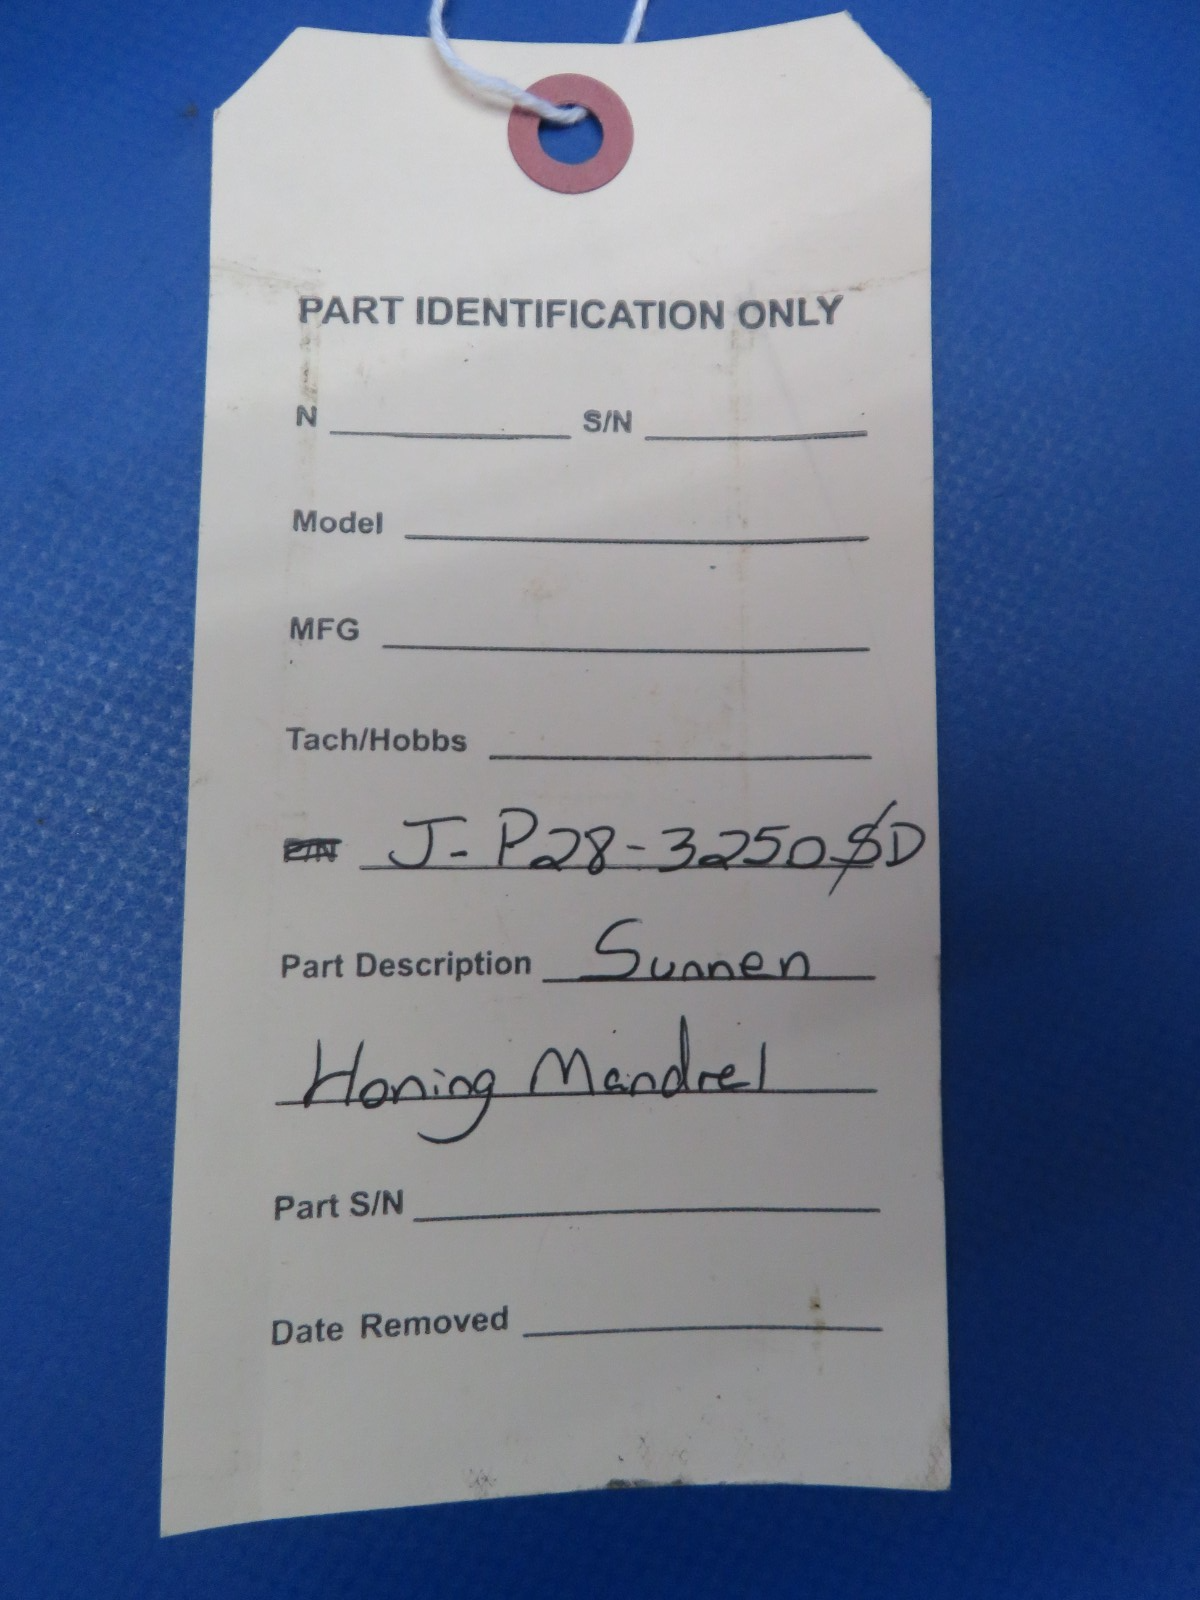 PART IDENTIFICATION ONLY
N S/N
Model
MFG
Tach/Hobbs
P/N J-P28-3250 D
Part Description Sunnen
Honing Mandrel
Part S/N
Date Removed